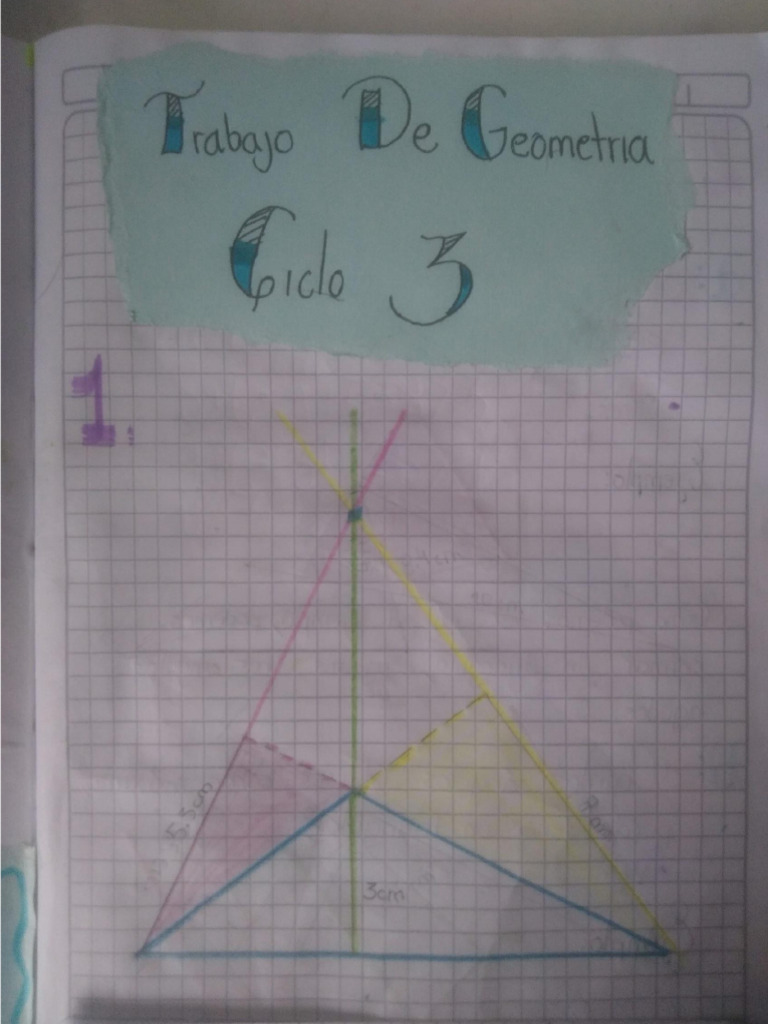 Trabajo De Geometria
Ciclo 3
1.
5.5cm
3cm